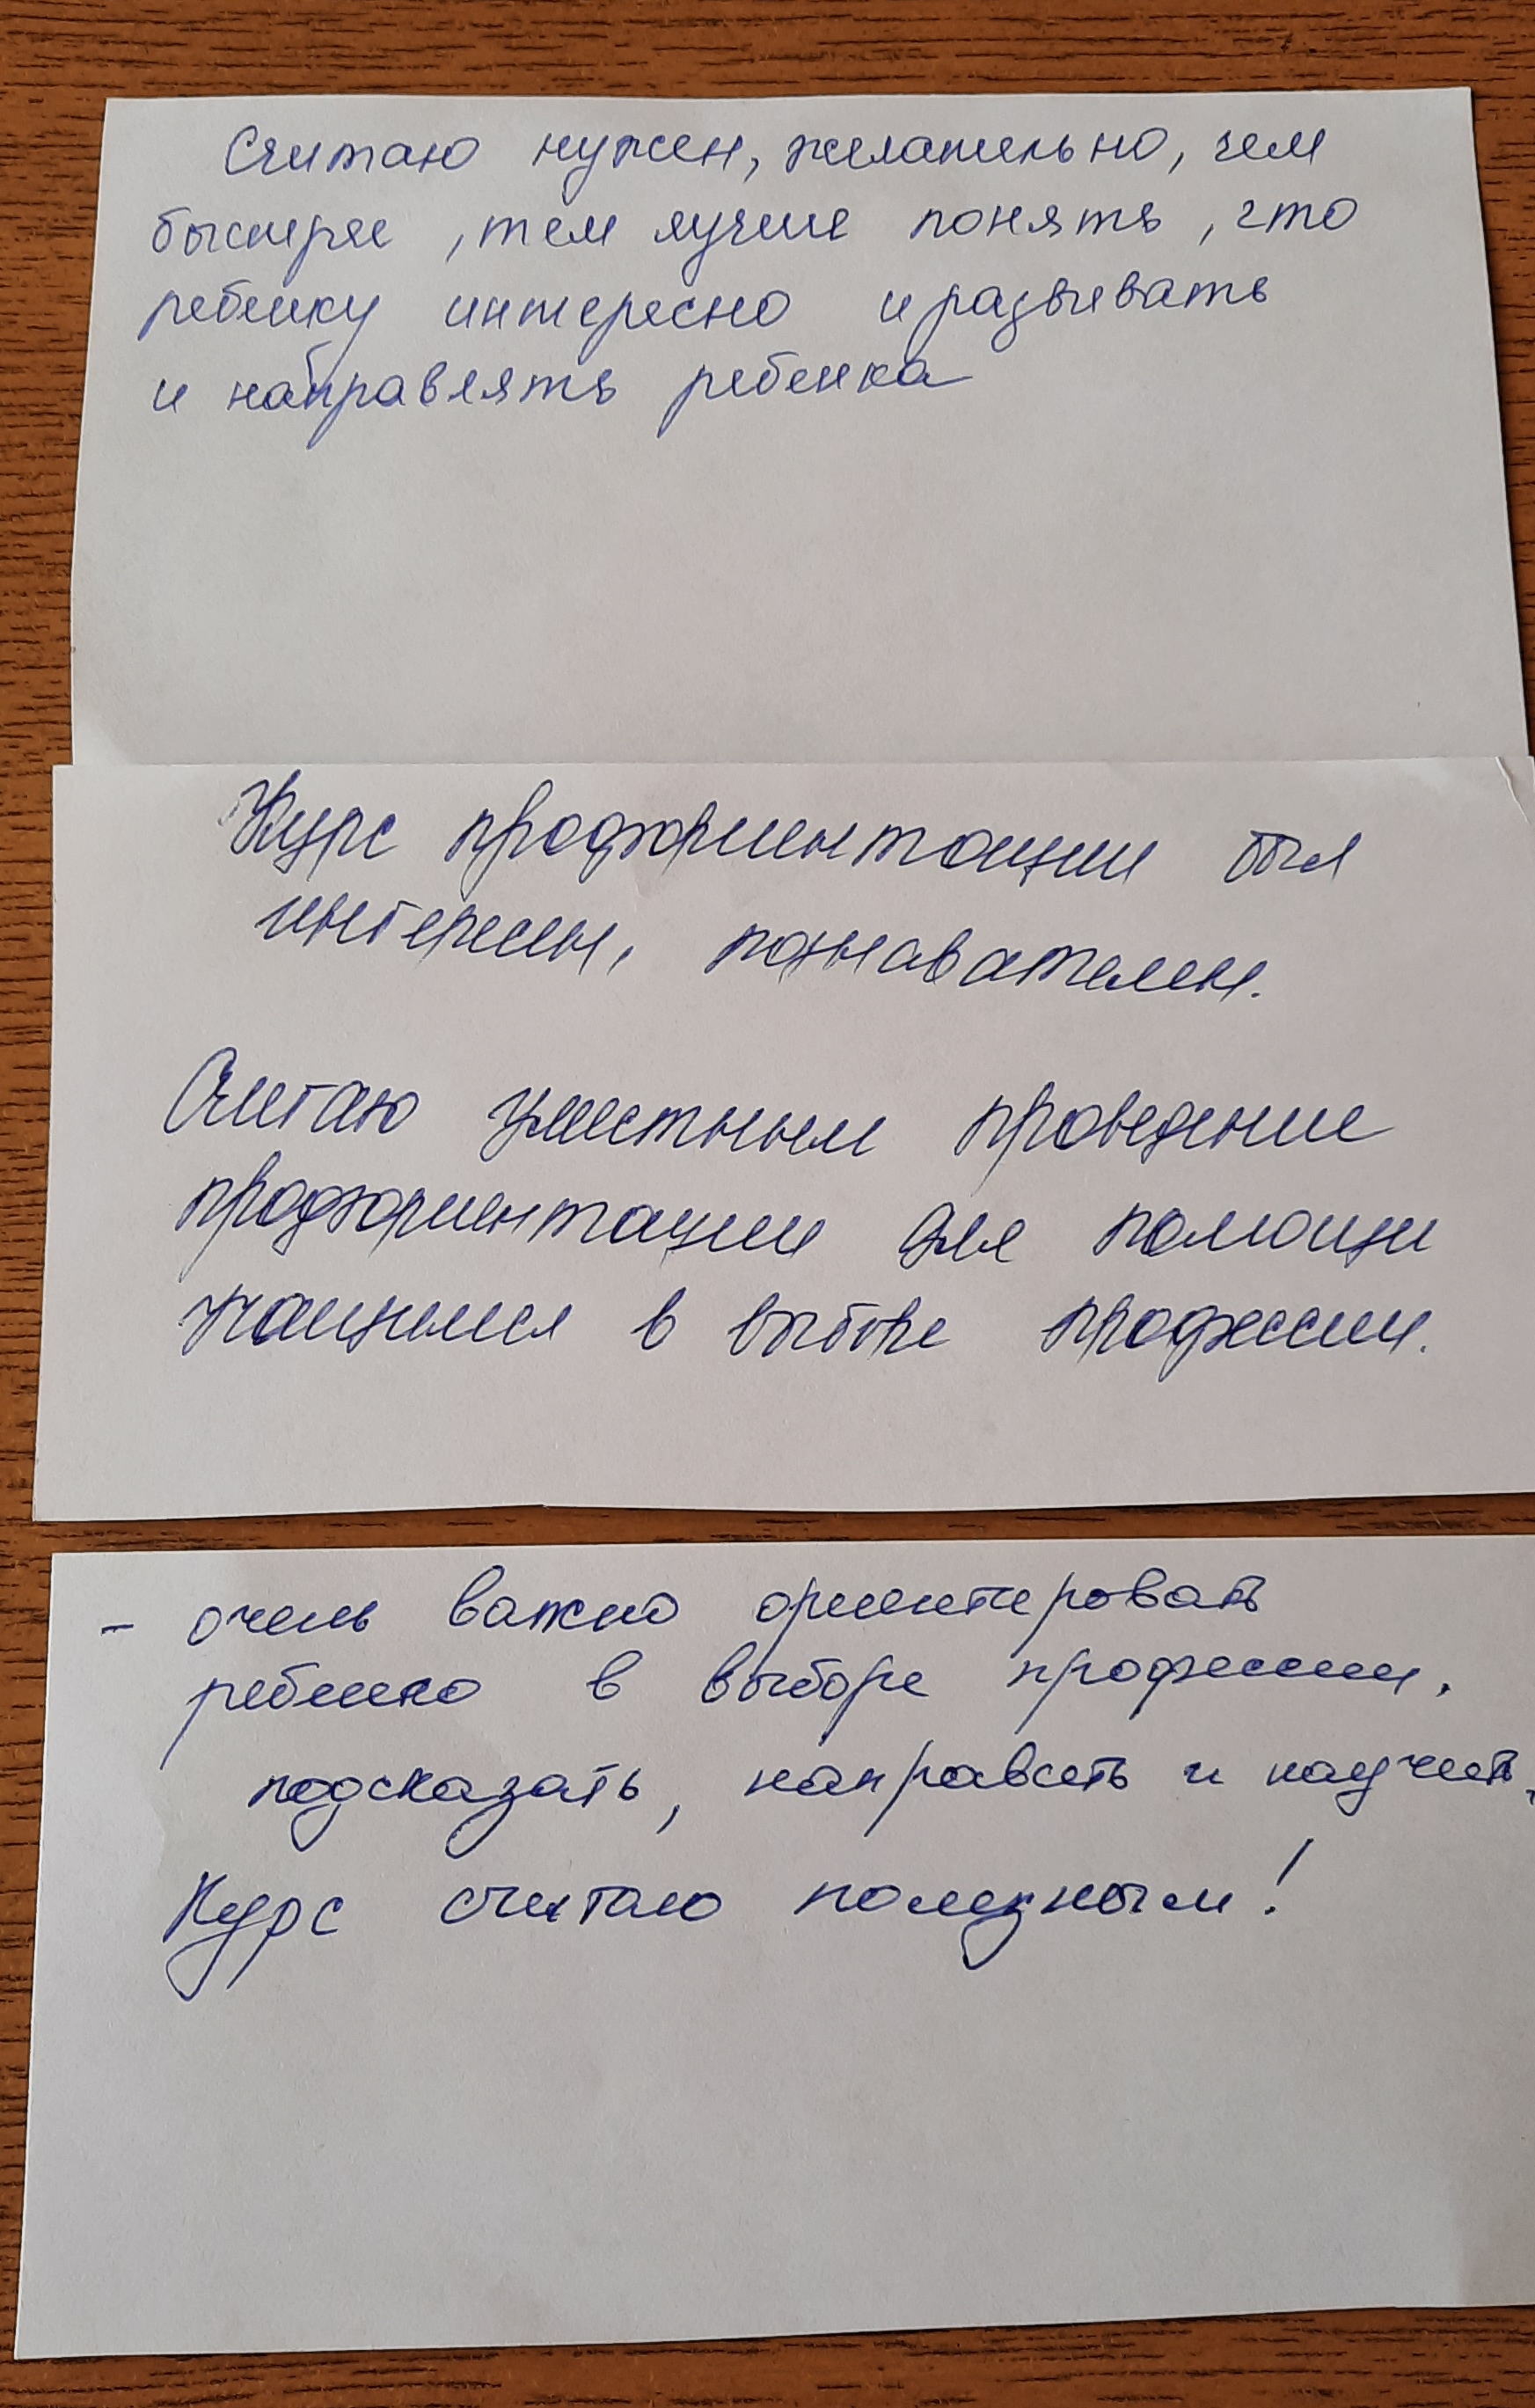 Считаю нужен, желательно, чем
быстрее, тем лучше понять, что
ребенку интересно и развивать
и направлять ребенка
Курс профориентации был
интересен, познавателен.
Считаю уместным проведение
профориентации для помощи
учащимся в выборе профессии.
- очень важно ориентировать
ребенка в выборе профессии,
подсказать, направить и научить.
Курс считаю полезным!